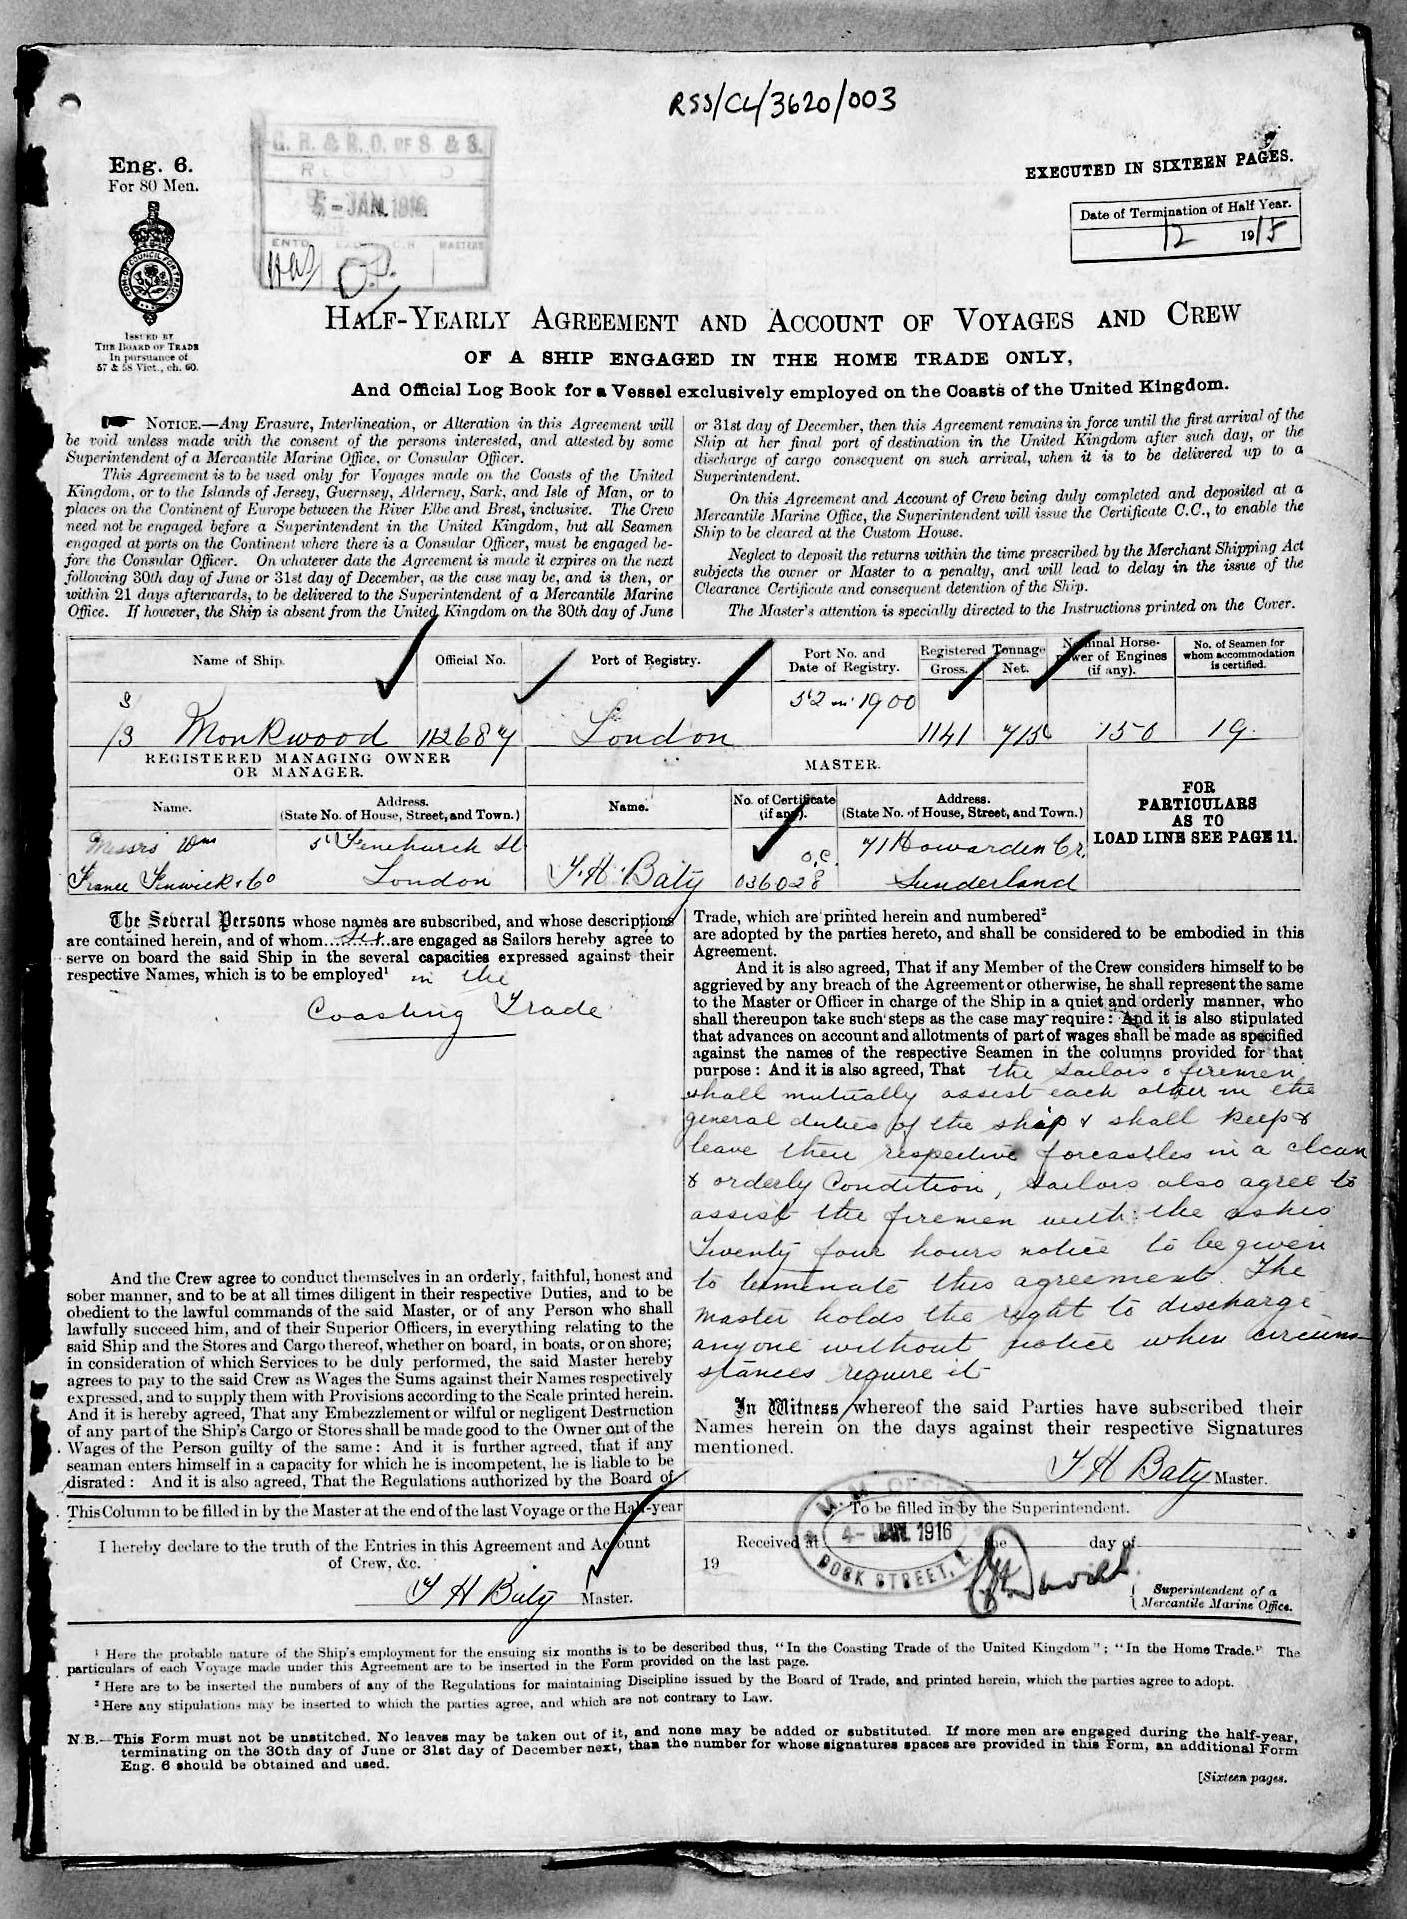 RSS/CL/3620/003
Eng. 6.
For 80 Men.
G. R. & R. O. OF S. & S.
5 - JAN. 1916
EXECUTED IN SIXTEEN PAGES.
Date of Termination of Half Year.
12 1915
COM. OF COUNCIL FOR TRADE
ISSUED BY
THE BOARD OF TRADE
In pursuance of
57 & 58 Vict., ch. 60.
HALF-YEARLY AGREEMENT AND ACCOUNT OF VOYAGES AND CREW
OF A SHIP ENGAGED IN THE HOME TRADE ONLY,
And Official Log Book for a Vessel exclusively employed on the Coasts of the United Kingdom.
NOTICE.—Any Erasure, Interlineation, or Alteration in this Agreement will
be void unless made with the consent of the persons interested, and attested by some
Superintendent of a Mercantile Marine Office, or Consular Officer.
This Agreement is to be used only for Voyages made on the Coasts of the United
Kingdom, or to the Islands of Jersey, Guernsey, Alderney, Sark, and Isle of Man, or to
places on the Continent of Europe between the River Elbe and Brest, inclusive. The Crew
need not be engaged before a Superintendent in the United Kingdom, but all Seamen
engaged at ports on the Continent where there is a Consular Officer, must be engaged be-
fore the Consular Officer. On whatever date the Agreement is made it expires on the next
following 30th day of June or 31st day of December, as the case may be, and is then, or
within 21 days afterwards, to be delivered to the Superintendent of a Mercantile Marine
Office. If however, the Ship is absent from the United Kingdom on the 30th day of June
or 31st day of December, then this Agreement remains in force until the first arrival of the
Ship at her final port of destination in the United Kingdom after such day, or the
discharge of cargo consequent on such arrival, when it is to be delivered up to a
Superintendent.
On this Agreement and Account of Crew being duly completed and deposited at a
Mercantile Marine Office, the Superintendent will issue the Certificate C.C., to enable the
Ship to be cleared at the Custom House.
Neglect to deposit the returns within the time prescribed by the Merchant Shipping Act
subjects the owner or Master to a penalty, and will lead to delay in the issue of the
Clearance Certificate and consequent detention of the Ship.
The Master's attention is specially directed to the Instructions printed on the Cover.
Name of Ship. Official No. Port of Registry. Port No. and Date of Registry. Registered Tonnage Gross. Net. Nominal Horse-power of Engines (if any). No. of Seamen for whom accommodation is certified.
S/S Monkwood 112687 London 52 in 1900 1141 715 150 19
REGISTERED MANAGING OWNER
OR MANAGER.
MASTER.
Name. Address. (State No. of House, Street, and Town.) Name. No. of Certificate (if any). Address. (State No. of House, Street, and Town.)
FOR
PARTICULARS
AS TO
LOAD LINE SEE PAGE 11.
Messrs Wm 5 Fenchurch St O.C. 71 Hawarden Cr.
France Fenwick & Co London T. H. Baty 036028 Sunderland
The Several Persons whose names are subscribed, and whose descriptions
are contained herein, and of whom six are engaged as Sailors hereby agree to
serve on board the said Ship in the several capacities expressed against their
respective Names, which is to be employed¹ in the
Coasting Trade
And the Crew agree to conduct themselves in an orderly, faithful, honest and
sober manner, and to be at all times diligent in their respective Duties, and to be
obedient to the lawful commands of the said Master, or of any Person who shall
lawfully succeed him, and of their Superior Officers, in everything relating to the
said Ship and the Stores and Cargo thereof, whether on board, in boats, or on shore;
in consideration of which Services to be duly performed, the said Master hereby
agrees to pay to the said Crew as Wages the Sums against their Names respectively
expressed, and to supply them with Provisions according to the Scale printed herein.
And it is hereby agreed, That any Embezzlement or wilful or negligent Destruction
of any part of the Ship's Cargo or Stores shall be made good to the Owner out of the
Wages of the Person guilty of the same: And it is further agreed, that if any
seaman enters himself in a capacity for which he is incompetent, he is liable to be
disrated: And it is also agreed, That the Regulations authorized by the Board of
Trade, which are printed herein and numbered²
are adopted by the parties hereto, and shall be considered to be embodied in this
Agreement.
And it is also agreed, That if any Member of the Crew considers himself to be
aggrieved by any breach of the Agreement or otherwise, he shall represent the same
to the Master or Officer in charge of the Ship in a quiet and orderly manner, who
shall thereupon take such steps as the case may require: And it is also stipulated
that advances on account and allotments of part of wages shall be made as specified
against the names of the respective Seamen in the columns provided for that
purpose: And it is also agreed, That the sailors & firemen
shall mutually assist each other in the
general duties of the ship & shall keep &
leave their respective forecastles in a clean
& orderly Condition, Sailors also agree to
assist the firemen with the ashes
Twenty four hours notice to be given
to terminate this agreement. The
Master holds the right to discharge
anyone without notice when circum-
stances require it
In Witness whereof the said Parties have subscribed their
Names herein on the days against their respective Signatures
mentioned.
T H Baty Master.
This Column to be filled in by the Master at the end of the last Voyage or the Half-year
I hereby declare to the truth of the Entries in this Agreement and Account
of Crew, &c.
T H Baty Master.
To be filled in by the Superintendent.
Received at the day of
19
M. M. OFFICE
4 - JAN. 1916
DOCK STREET, E.
Superintendent of a
Mercantile Marine Office.
¹ Here the probable nature of the Ship's employment for the ensuing six months is to be described thus, "In the Coasting Trade of the United Kingdom"; "In the Home Trade." The
particulars of each Voyage made under this Agreement are to be inserted in the Form provided on the last page.
² Here are to be inserted the numbers of any of the Regulations for maintaining Discipline issued by the Board of Trade, and printed herein, which the parties agree to adopt.
³ Here any stipulations may be inserted to which the parties agree, and which are not contrary to Law.
N.B.—This Form must not be unstitched. No leaves may be taken out of it, and none may be added or substituted. If more men are engaged during the half-year,
terminating on the 30th day of June or 31st day of December next, than the number for whose signatures spaces are provided in this Form, an additional Form
Eng. 6 should be obtained and used.
[Sixteen pages.